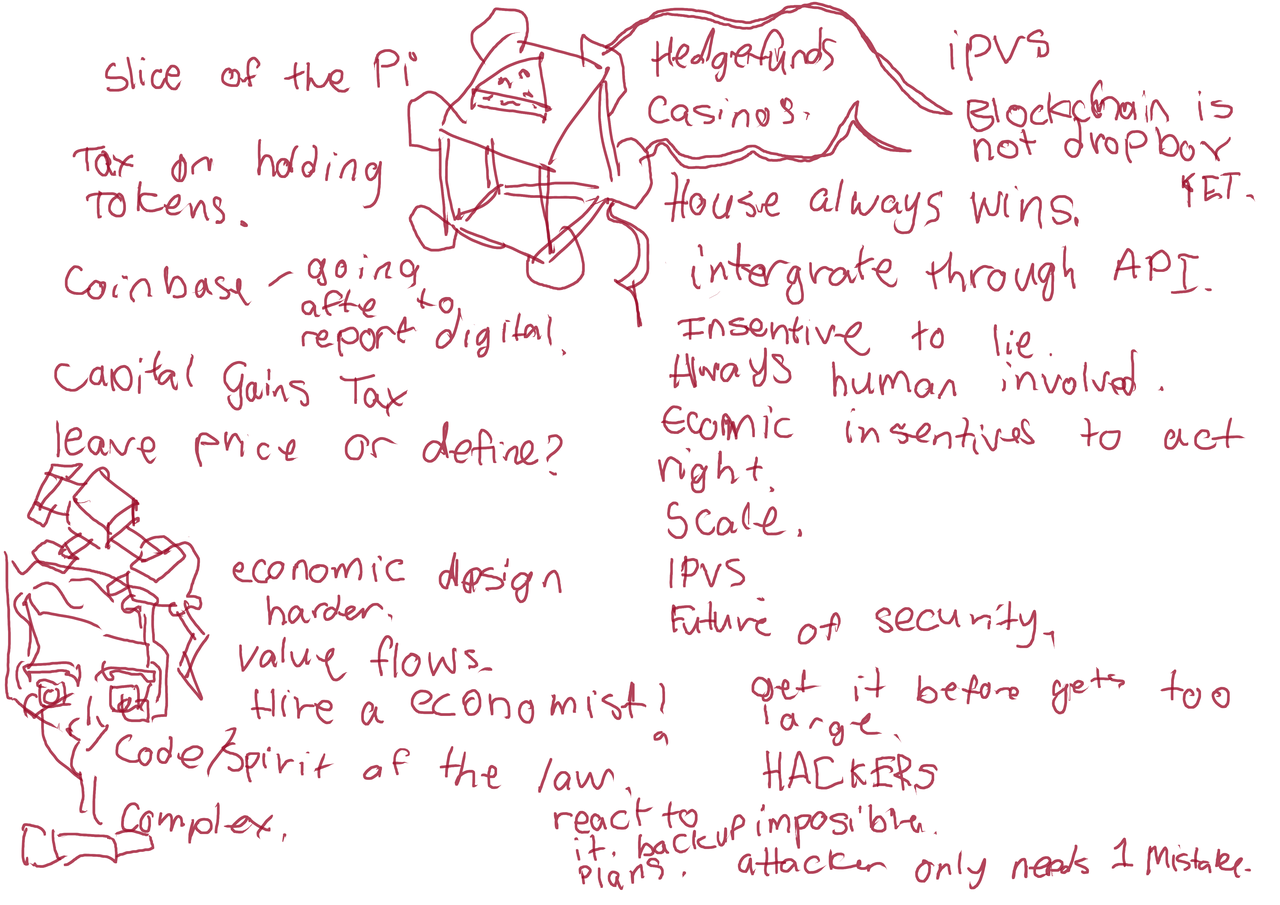 Slice of the Pi
Tax on holding
Tokens.
Coinbase - going
afte to
report digital.
Capital Gains Tax
leave price or define?
economic design
harder.
Value flows.
Hire a economist!
Code/spirit of the law.
Complex.
Hedgefunds
Casinos.
House always wins.
intergrate through API.
Insentive to lie.
Always human involved.
Ecomic insentives to act
right.
Scale.
IPVS
Future of security.
get it before gets too
large.
HACKERS
react to imposible.
it. backup
plans. attacker only needs 1 Mistake.
iPVS
Blockchain is
not dropbox
YET.